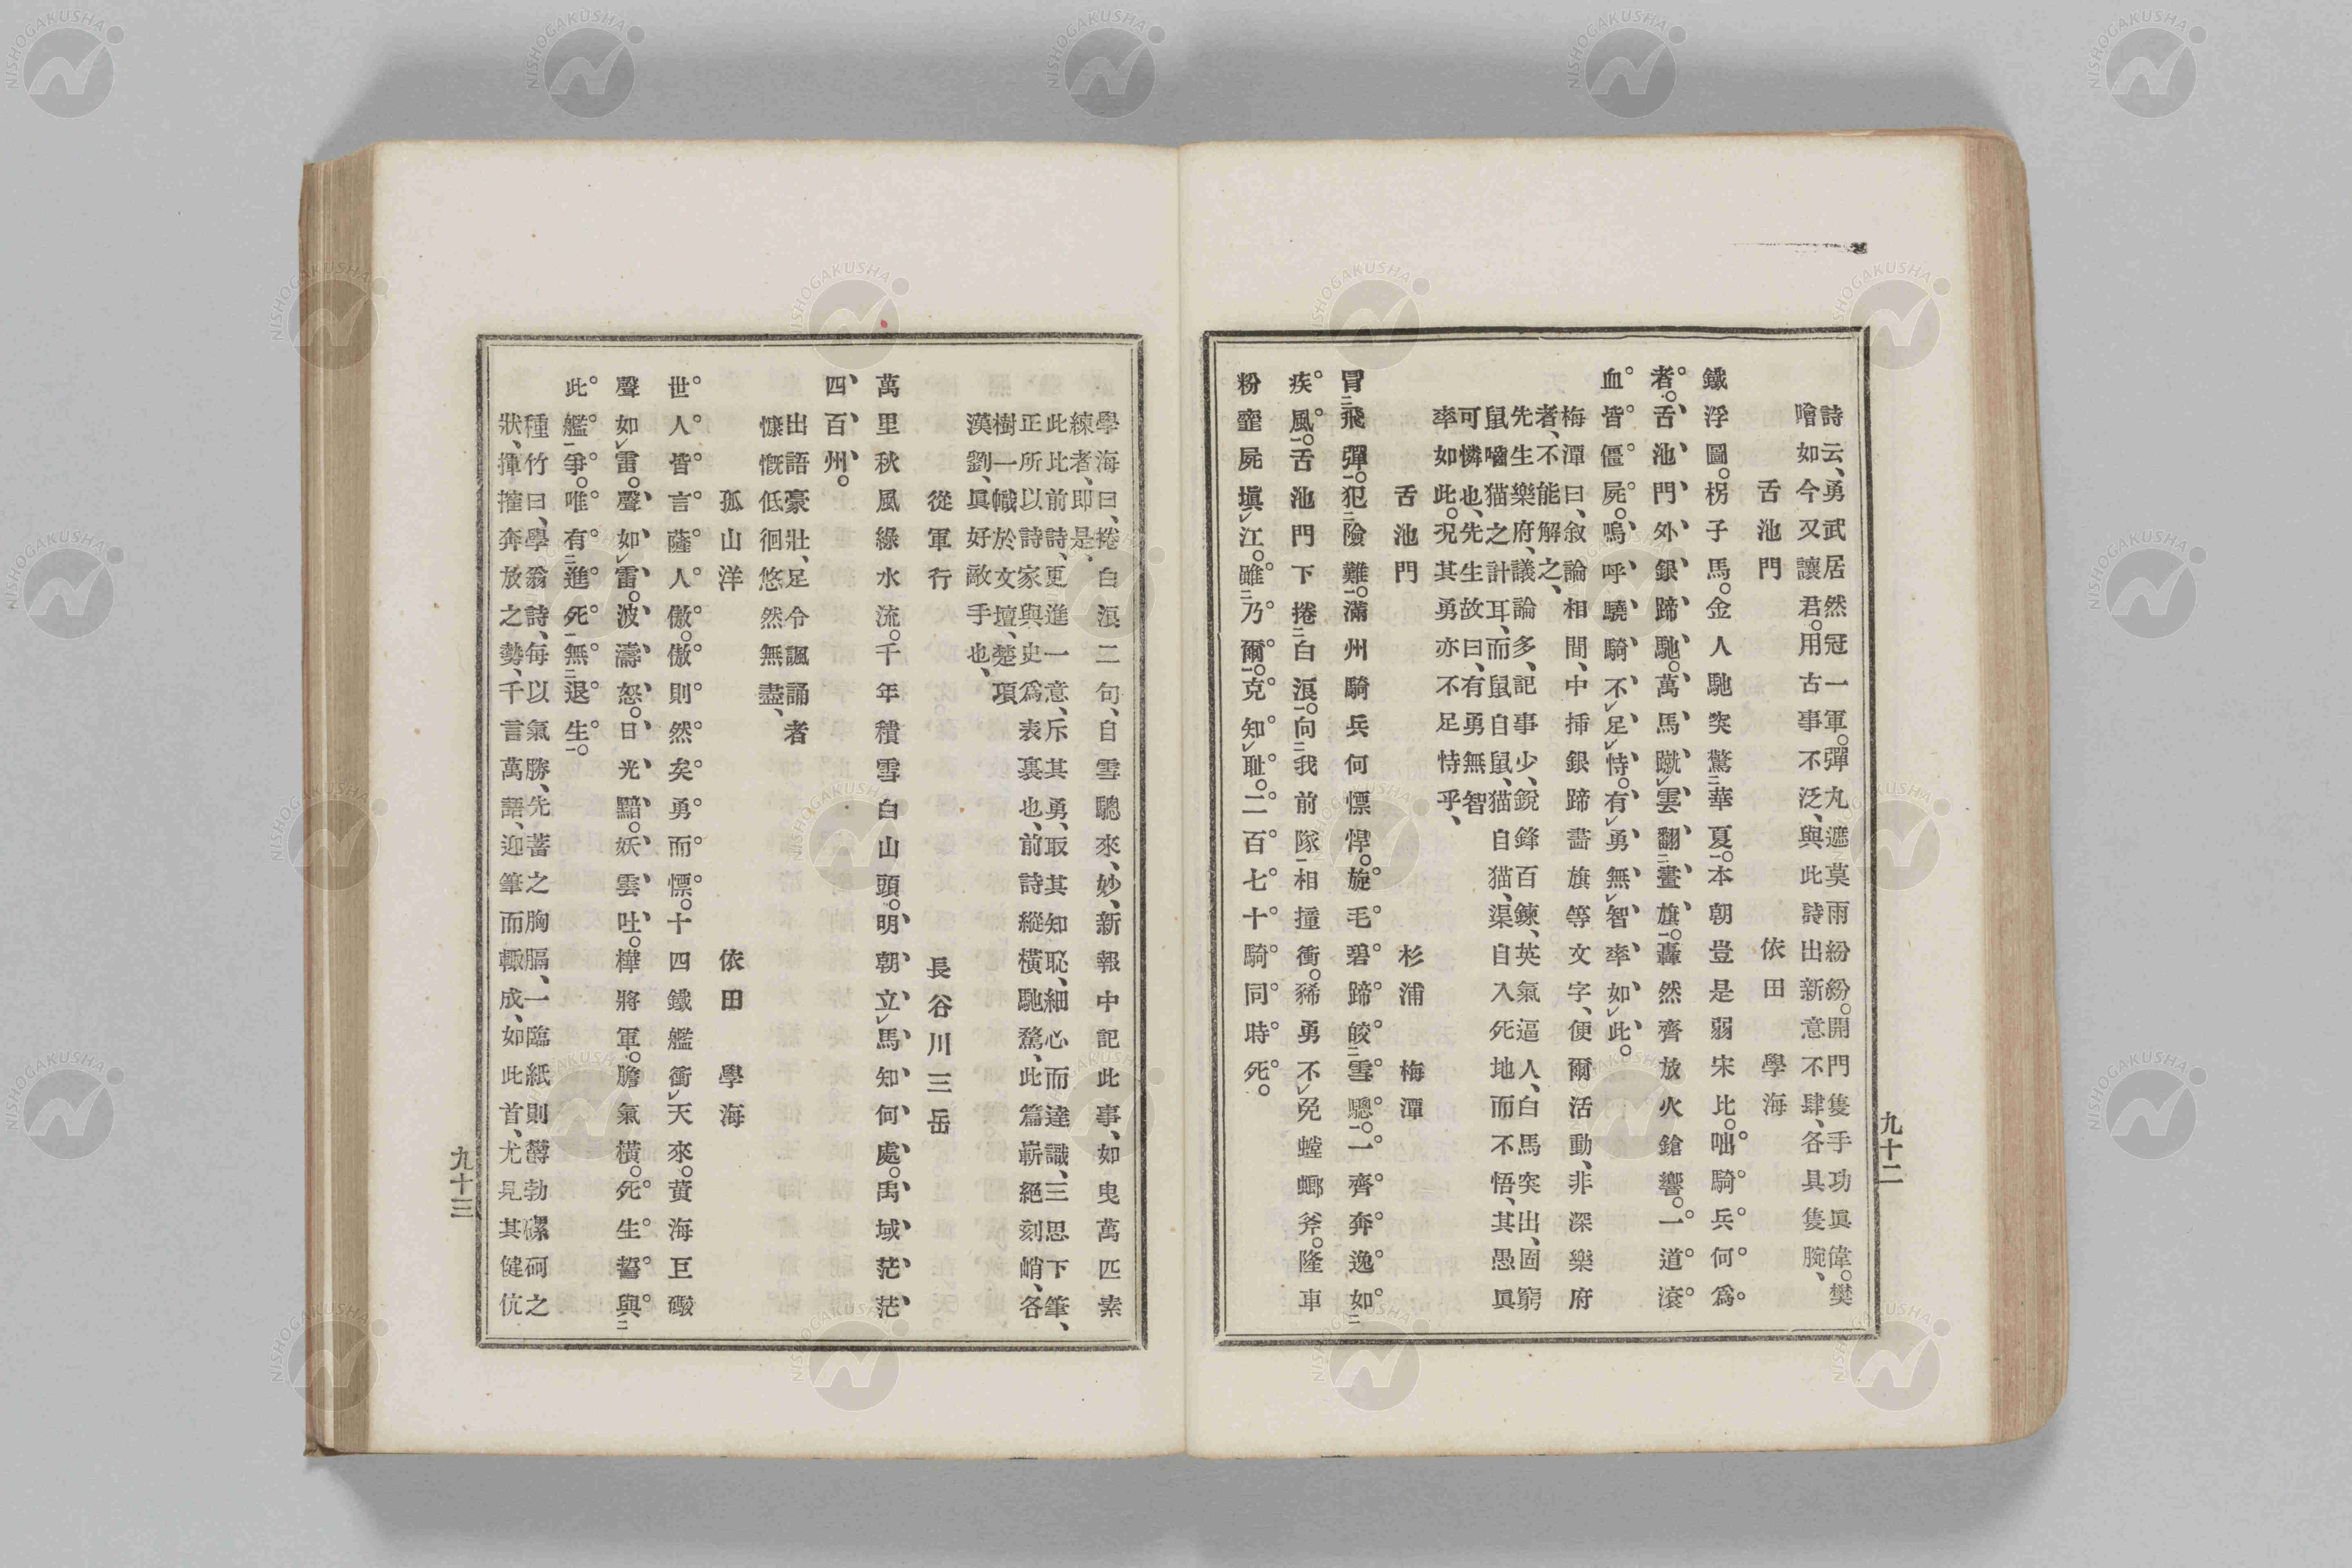 詩云、勇武居然冠一軍。彈丸遮莫雨紛紛。開門隻手功眞偉。樊
噲如今又讓君。用古事不泛、與此詩出新意不肆、各具隻腕、
舌池門　依田學海
鐵浮圖。枴子馬。金人馳突驚二華夏一。本朝豈是弱宋比。咄騎兵何爲
者。舌池門外銀蹄馳。萬馬蹴レ雲翻二畫旗一。轟然齊放火鎗響。一道滾
血皆僵屍。嗚呼驍騎不レ足レ恃。有レ勇無レ智率如レ此。
梅潭曰、敘論相間、中揷銀蹄畵旗等文字、便爾活動、非深樂府
者、不能解之、
先生樂府、議論多、記事少、銳鋒百鍊、英氣逼人、白馬突出、固窮
鼠嚙猫之計耳、而鼠自鼠、猫自猫、渠自入死地而不悟、其愚眞
可憐也、先生故曰、有勇無智
率如此。況其勇亦不足恃乎、
舌池門　杉浦梅潭
冒二飛彈一。犯二險難一。滿州騎兵何慓悍。旋毛碧蹄皎二雪驄一。一齊奔逸如二
疾風一。舌池門下捲二白浪一。向二我前隊一相撞衝。豨勇不レ免螳螂斧。隆車
粉韲屍塡レ江。雖二乃爾一。克知レ耻。二百七十騎同時死。
九十二
學海曰、捲白浪二句、自雪驄來、妙、新報中記此事、如曳萬匹素
練者、卽是、
此比前詩、更進一意、斥其勇、取其知恥、細心而達識、三思下筆、
正所以詩家與史爲表裏也、前詩縱橫馳騖、此篇嶄絕刻峭、各
樹一幟於文壇、楚項
漢劉、眞好敵手也、
從軍行　長谷川三岳
萬里秋風綠水流。千年積雪白山頭。明朝立レ馬知何處。禹域茫茫
四百州。
出語豪壯、足令諷誦者
慷慨低徊悠然無盡、
孤山洋　依田學海
世人皆言薩人傲。傲則然矣勇而慓。十四鐵艦衝レ天來。黃海巨礮
聲如レ雷。聲如レ雷。波濤怒。日光黯。妖雲吐。樺將軍。膽氣橫。死生誓與二
此艦一爭。唯有二進死一無二退生一。
種竹曰、學翁詩、每以氣勝、先蓄之胸膈、一臨紙則欝勃磥砢之
狀、揮摧奔放之勢、千言萬語、迎筆而輙成、如此首、尤見其健伉
九十三